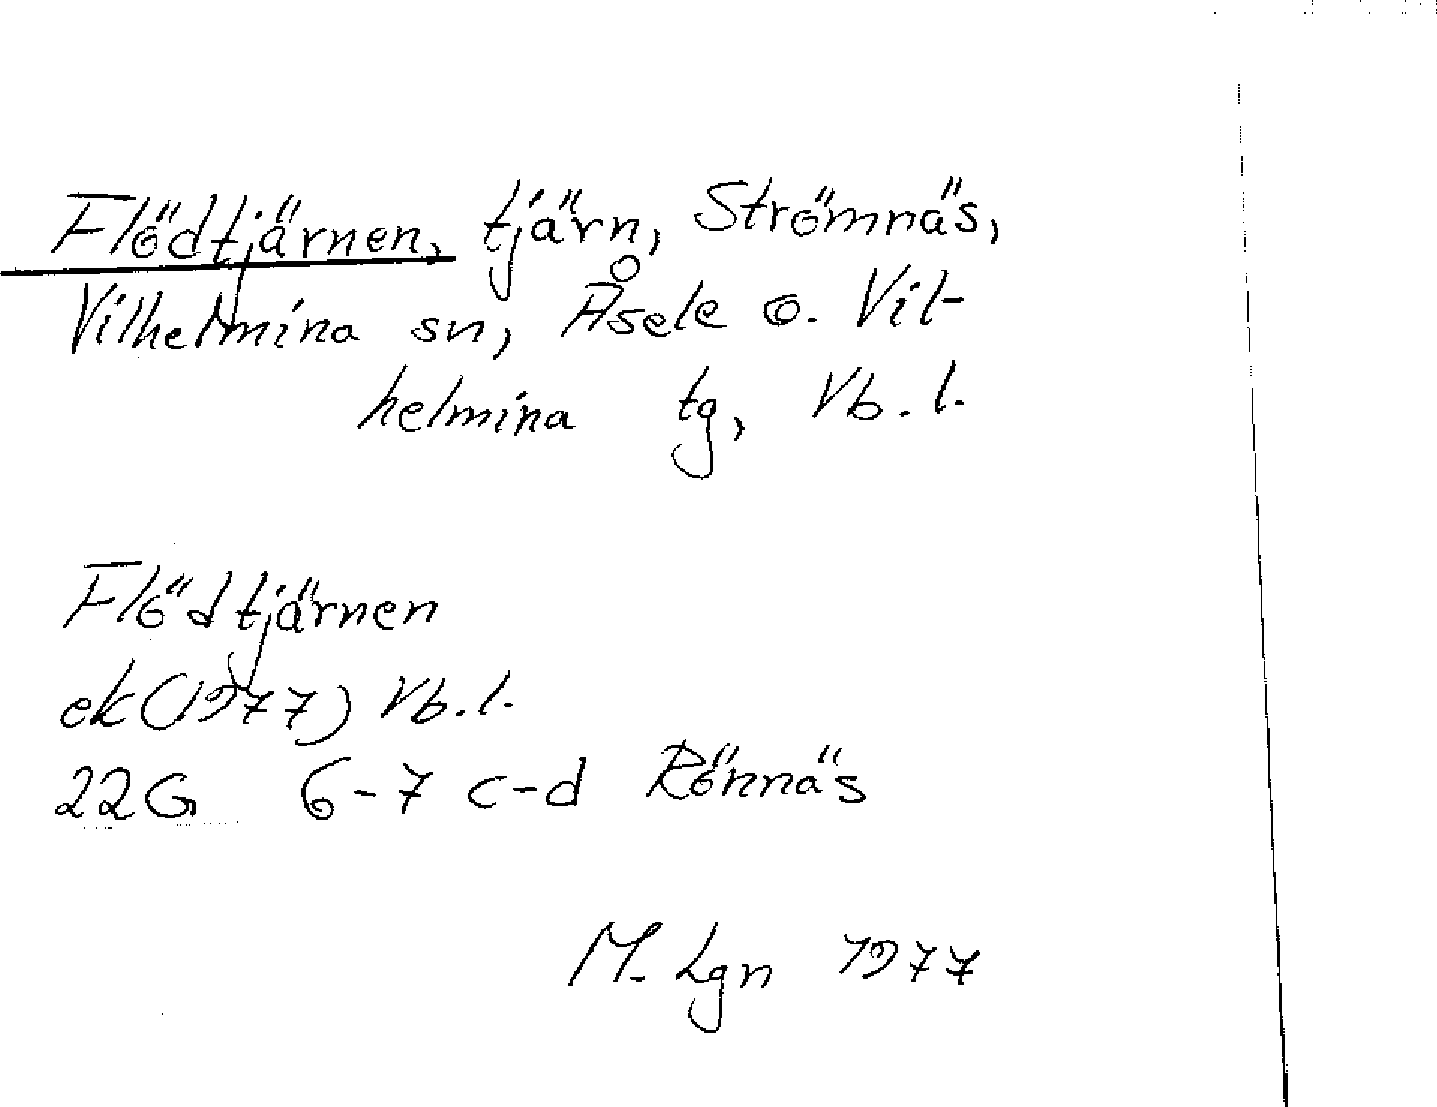 Flödtjärnen, tjärn, Strömnäs,
Vilhelmina sn, Åsele o. Vil-
helmina tg, Vb. l.
Flödtjärnen
ek (1977) Vb. l.
22G 6-7 c-d Rönnäs
M. Lgn 1977